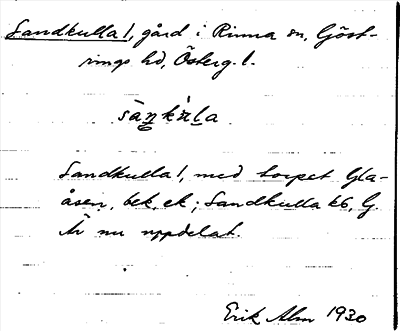 Sandkulla 1, gård i Rinna sn, Göst-
rings hd, Österg. l.
Sandkulla 1, med torpet Gla-
åsen, bek. ek; Sandkulla kb, G.
Är nu uppdelat.
Erik Alm 1930